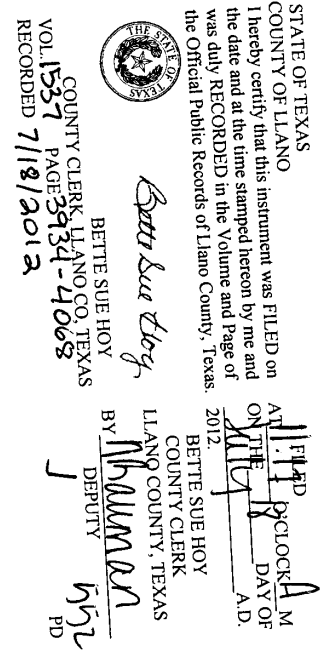 STATE OF TEXAS
COUNTY OF LLANO
I hereby certify that this instrument was FILED on
the date and at the time stamped hereon by me and
was duly RECORDED in the Volume and Page of
the Official Public Records of Llano County, Texas.
THE STATE OF TEXAS
Bette Sue Hoy
BETTE SUE HOY
COUNTY CLERK, LLANO CO, TEXAS
VOL. 1537 PAGE 3934-4068
RECORDED 7/18/2012
FILED
AT O'CLOCK A M
ON THE 18 DAY OF
July A.D.
2012.
BETTE SUE HOY
COUNTY CLERK
LLANO COUNTY, TEXAS
BY
DEPUTY
552
PD